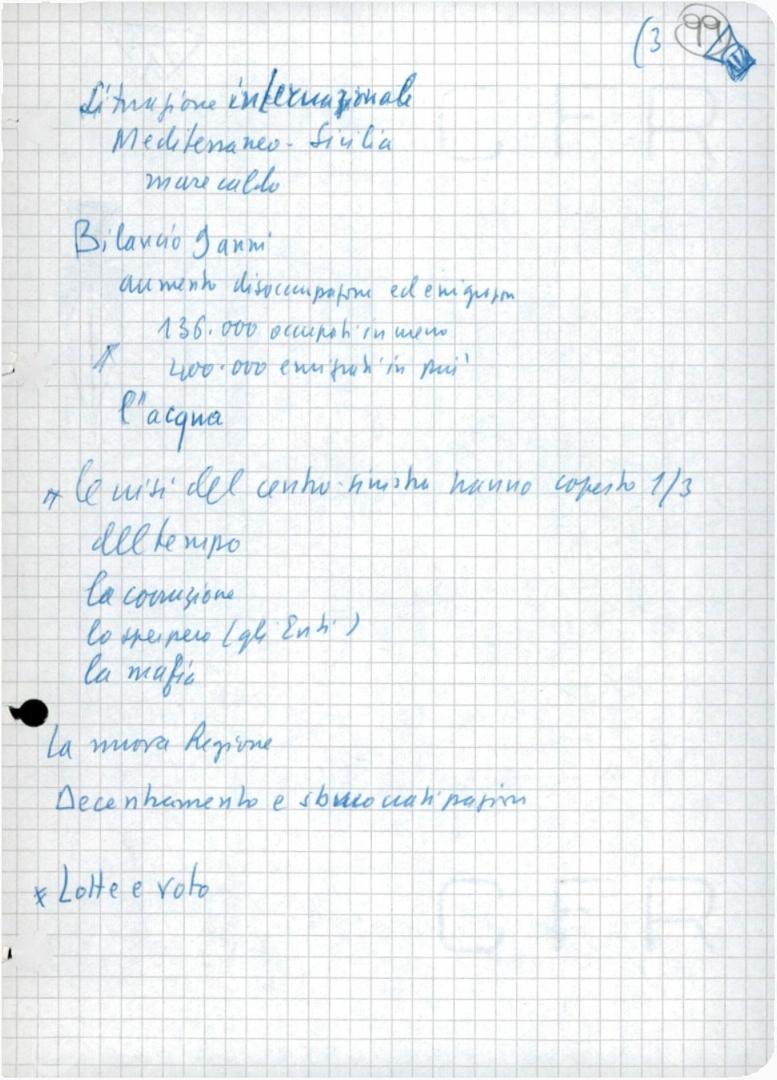 (3 99
Situazione internazionale
Mediterraneo - Sicilia
mare caldo
Bilancio 9 anni
aumento disoccupazione ed emigrazion
136.000 occupati in meno
400.000 emigrati in più
l'acqua
* le crisi del centro-sinistra hanno coperto 1/3
del tempo
la corruzione
lo sperpero (gli Enti)
la mafia
La nuova Regione
Decentramento e sburocratizzazion
* Lotte e voto
CFR
CFR